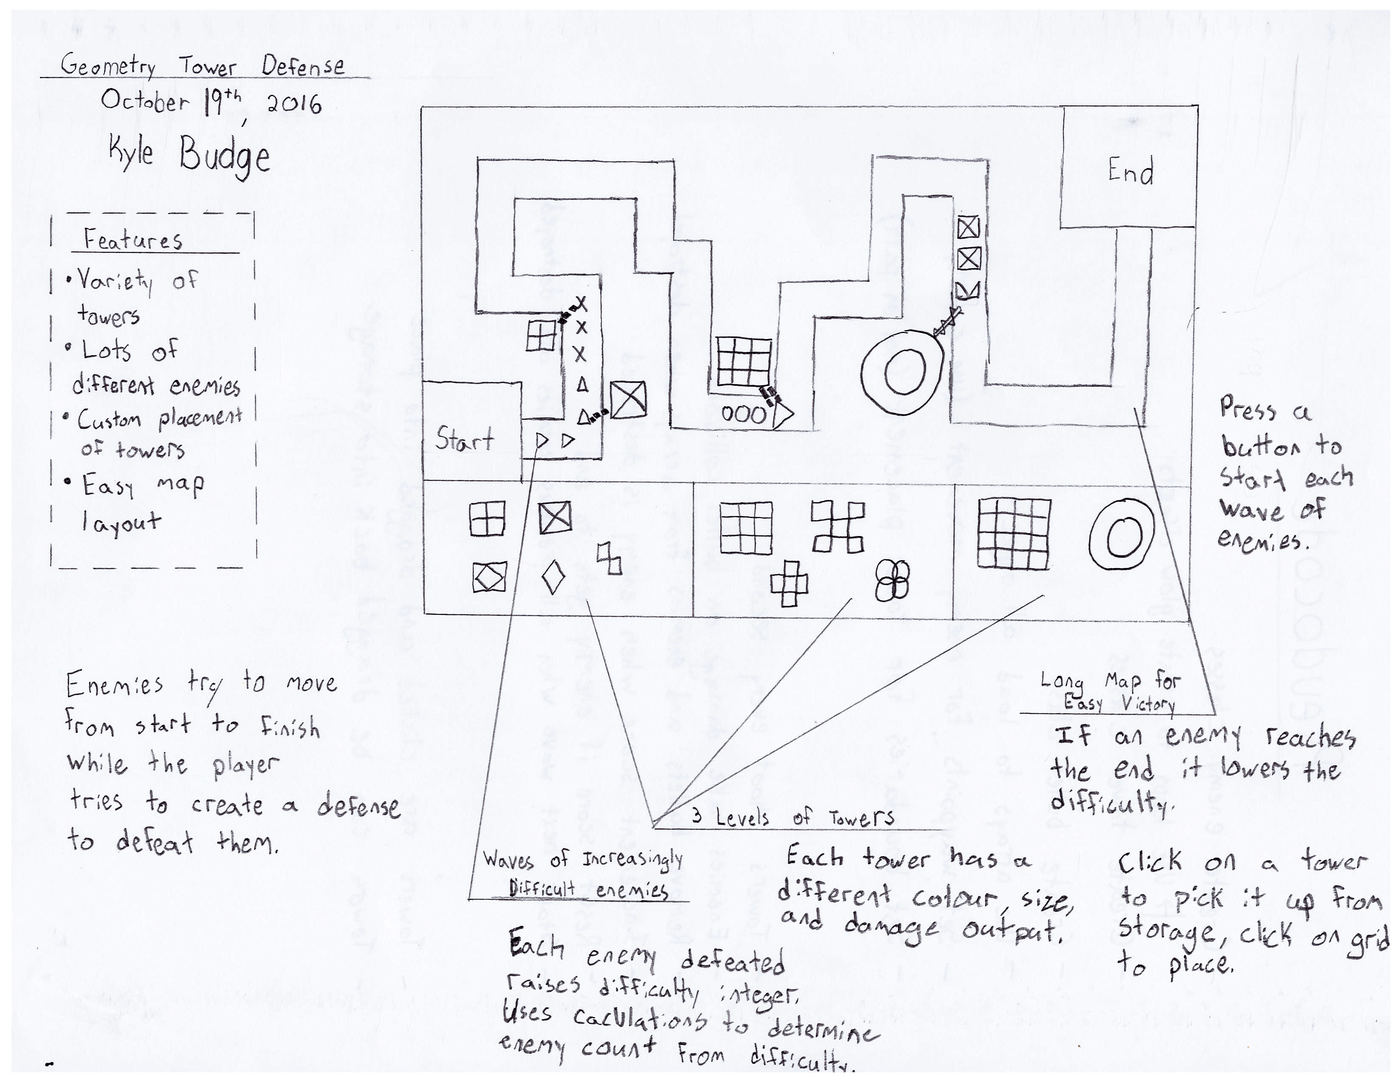 Geometry Tower Defense
October 19th, 2016
Kyle Budge
Features
• Variety of
towers
• Lots of
different enemies
• Custom placement
of towers
• Easy map
layout
End
Start
Press a
button to
start each
wave of
enemies.
Enemies try to move
from start to finish
while the player
tries to create a defense
to defeat them.
Waves of Increasingly
Difficult enemies
Each enemy defeated
raises difficulty integer.
Uses caculations to determine
enemy count from difficulty.
3 Levels of Towers
Each tower has a
different colour, size,
and damage output.
Long Map for
Easy Victory
If an enemy reaches
the end it lowers the
difficulty.
Click on a tower
to pick it up from
storage, click on grid
to place.